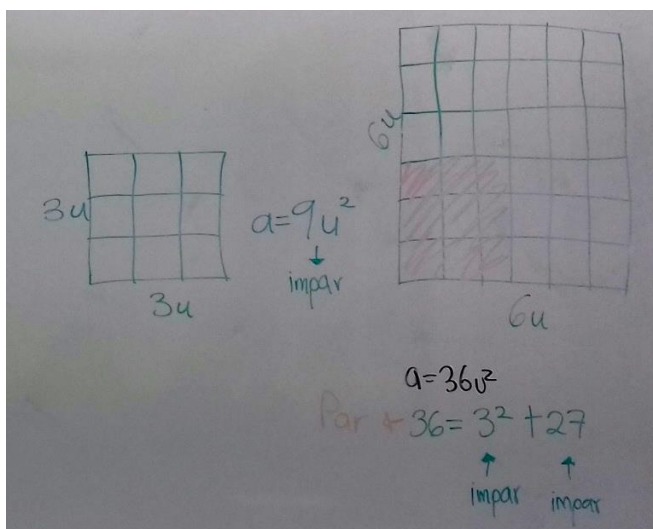 6u
3u
a=9u²
↓
impar
3u
6u
a=36u²
Par ← 36=3²+27
↑ ↑
impar impar